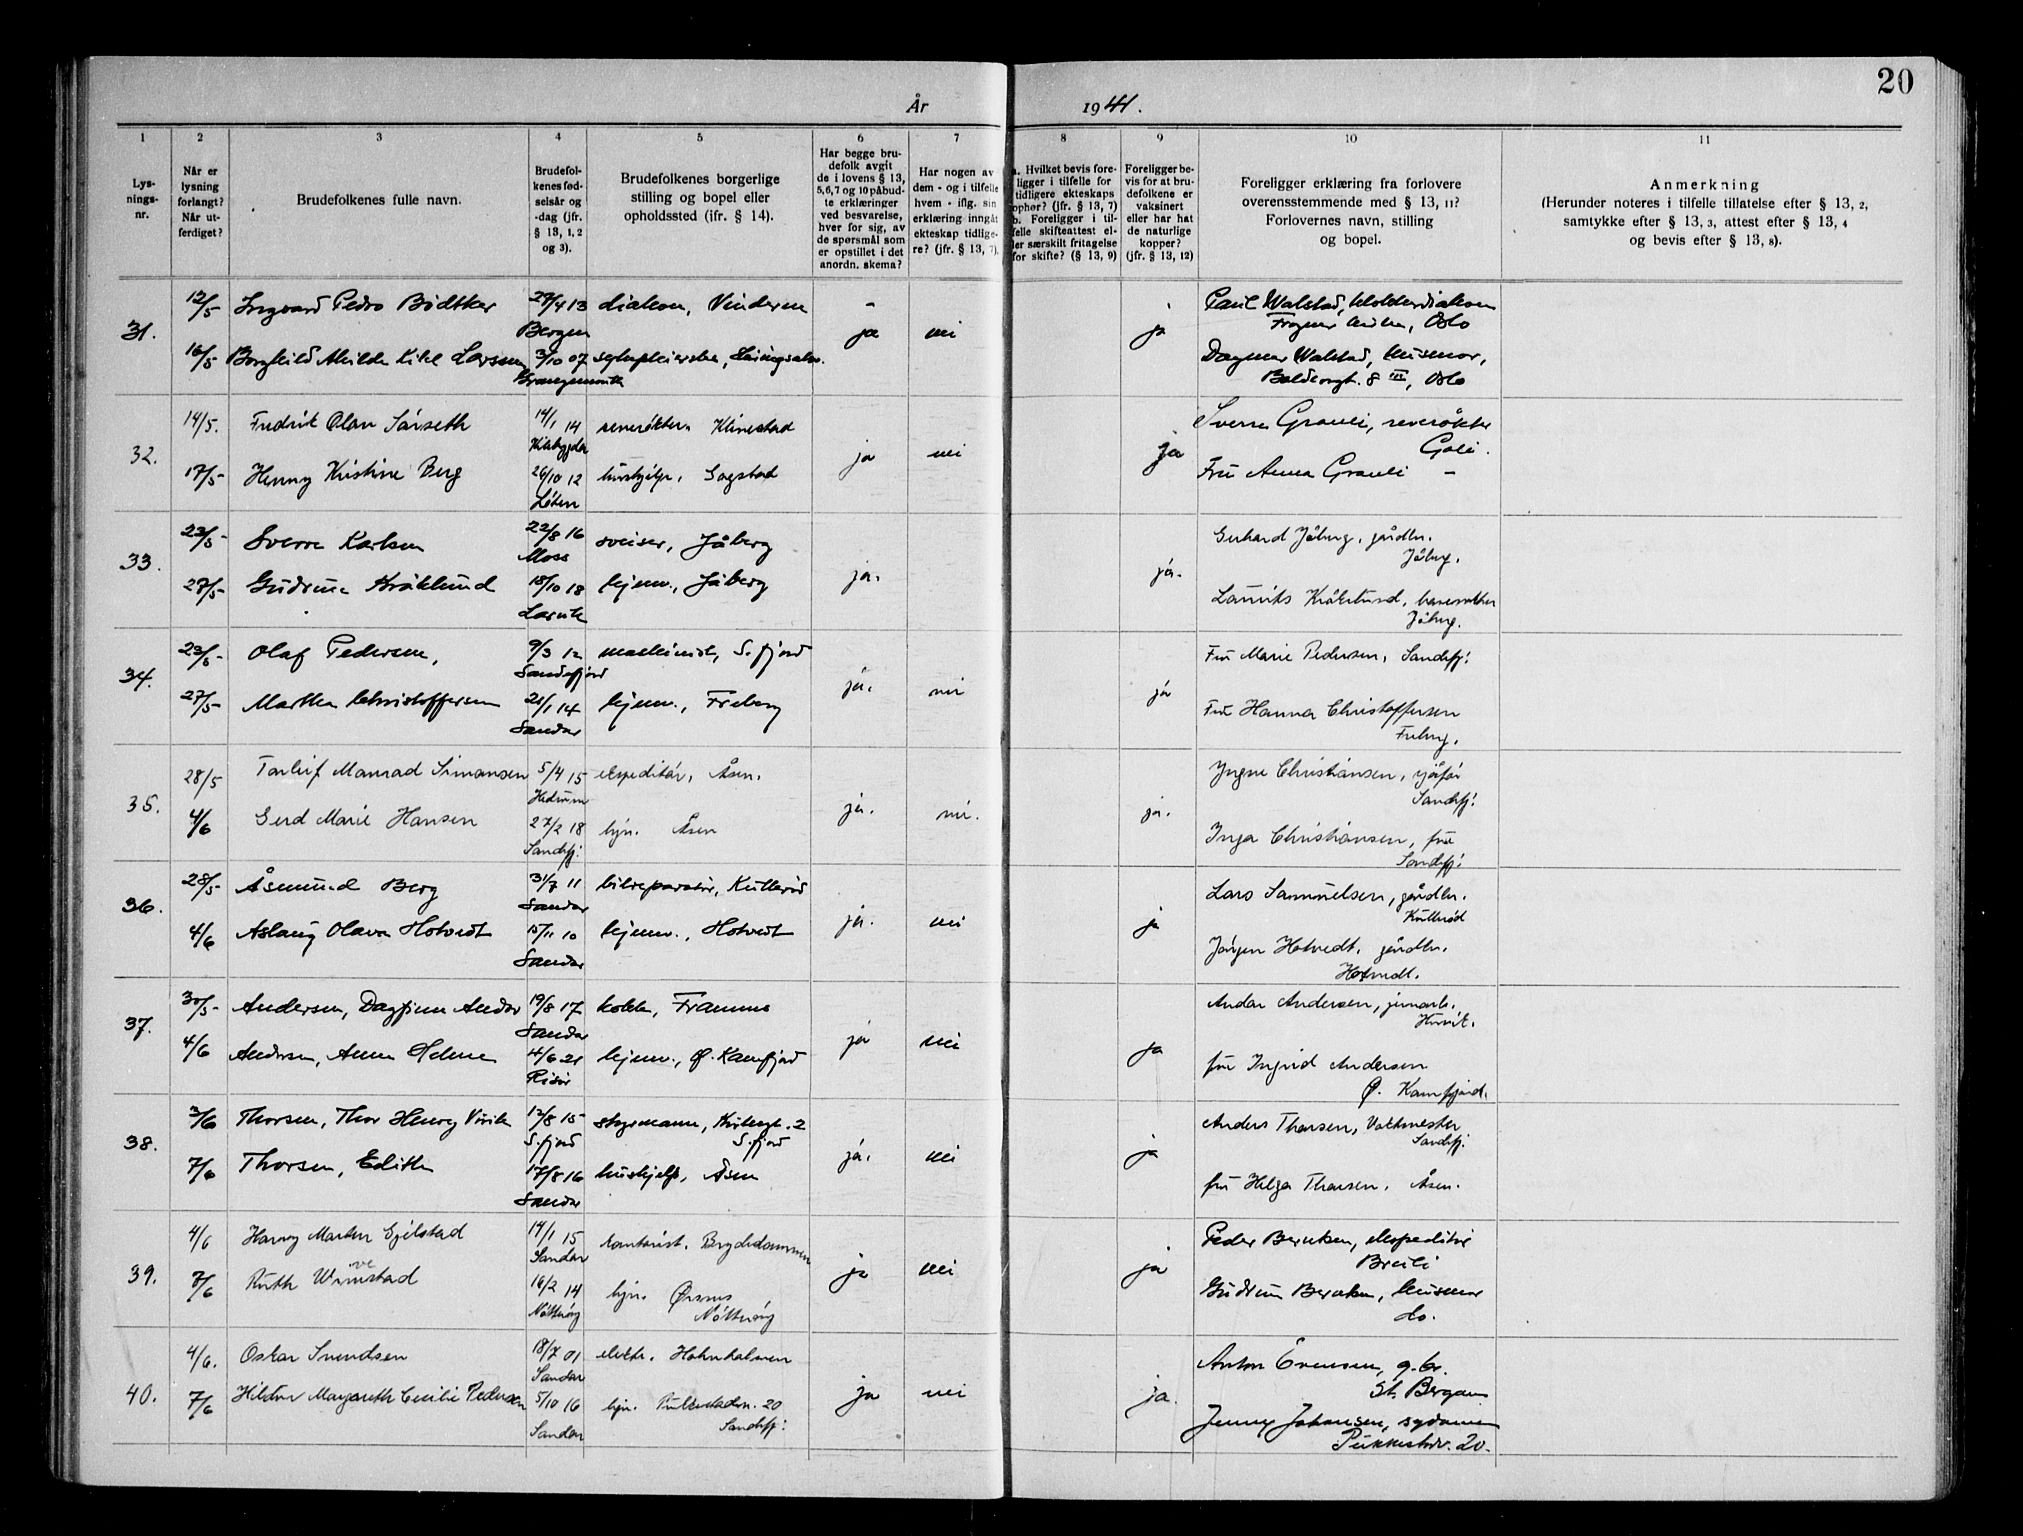 20
År 1941.
1 2 3 4 5 6 7 8 9 10 11
Lys-
nings-
nr.
Når er
lysning
forlangt?
Når ut-
ferdiget?
Brudefolkenes fulle navn.
Brudefol-
kenes fød-
selsår og
-dag (jfr.
§ 13, 1, 2
og 3).
Brudefolkenes borgerlige
stilling og bopel eller
opholdssted (ifr. § 14).
Har begge bru-
defolk avgit
de i lovens § 13,
5,6,7 og 10 påbud-
te erklæringer
ved besvarelse,
hver for sig, av
de spørsmål som
er opstillet i det
anordn. skema?
Har nogen av
dem - og i tilfelle
hvem - iflg. sin
erklæring inngått
ekteskap tidlige-
re? (jfr. § 13, 7).
a. Hvilket bevis fore-
ligger i tilfelle for
tidligere ekteskaps
ophør? (jfr. § 13, 7)
b. Foreligger i til-
felle skifteattest el-
ler særskilt fritagelse
for skifte? (§ 13, 9)
Foreligger be-
vis for at bru-
defolkene er
vaksinert
eller har hat
de naturlige
kopper?
(jfr. § 13, 12)
Foreligger erklæring fra forlovere
overensstemmende med § 13, 11?
Forlovernes navn, stilling
og bopel.
Anmerkning
(Herunder noteres i tilfelle tillatelse efter § 13, 2,
samtykke efter § 13, 3, attest efter § 13, 4
og bevis efter § 13, 8).
31. 12/5 Ingvard Pedro Bödtker 29/4 13 diakon, Vinderen - Paul Walstad, klokkerdiakon
Bergen ja nei ja Frogner kirke, Oslo
16/5 Borghild Larsen 3/10 07 sykepleierske, Dagmar Walstad, husmor,
Grangemouth 8 III, Oslo
32. 14/5. Fredrik Olav Sörseth 14/1 14 reverökter. Klinestad Sverre Grauli, reverökter
Klæbygda ja nei ja Goli.
17/5- Henny Kristine Berg 26/10 12 hushjelp, Gogstad Fru Anna Grauli -
Löten
33. 23/5- Sverre Karlsen 22/8 16 sveiser, Jåberg Gerhard Jåberg, gårdbr.
Moss ja. ja. Jåberg.
27/5- Gudrun Kråklund 18/10 18 hjemv., Jåberg Lauritz Kråklund,
Larvik Jåberg.
34. 23/5- Olaf Pedersen, 9/3 12 maskinist, S.fjord Fru Marie Pedersen, Sandefj:
Sandefjord ja. nei ja
27/5- Martha Christoffersen 21/1 14 hjemv., Freberg Fru Hanna Christoffersen
Sandar Freberg.
35. 28/5 Torleif Manrad Simonsen 5/4 15 ekspeditör, Åsen. Yngve Christiansen, sjåför
Hedrum ja. nei. ja. Sandefj:
4/6 Gerd Marie Hansen 27/2 18 hjv. Åsen Inga Christiansen, fru
Sandefj: Sandefj:
36. 28/5- Åsmund Berg 31/7 11 bilreparatör, Kullerød Lars Samuelsen, gårdbr.
Sandar ja. nei ja Kullerød
4/6 Aslaug Olava Hotvedt 15/11 10 hjemv., Hotvedt Jörgen Hotvedt, gårdbr.
Sandar Hotvedt.
37. 30/5- Andersen, Dagfinn Andor 19/8 17 kokk, Framnes Andor Andersen, jernarb.
Sandar ja nei ja
4/6 Andersen, Anna Helene 4/6 21 hjemv., Ø. Kamfjord fru Ingrid Andersen
Risör Ø. Kamfjord.
38. 3/6 Thorsen, Thor Henry Virik 12/8 15 styrmann, 2 Anders Thorsen, Vaktmester
S.fjord S.fjord ja. nei ja Sandefj:
7/6 Thorsen, Edith 17/8 16 hushjelp, Åsen fru Helga Thorsen, Åsen.
Sandar
39. 4/6 Harry Martin Gjelstad 14/1 15 kontorist. Brydedammen Peder Berntsen, ekspeditör
Sandar ja nei ja Breili
7/6 Ruth Wivestad 16/2 14 hjv. Ørsnes Gudrun Berntsen, husmor
Nötteröy Nötteröy do.
40. 4/6. Oskar Svendsen 18/7 01 elektr. Hahnholmen Anton Evensen, g.br.
Sandar ja nei ja. St. Bergan
7/6 Hildur Margareth Cecilie Pedersen 5/10 16 hjv. Pukkestadv. 20 Jenny Johansen, sydame
Sandar Sandefj: Pukkestadv. 20.